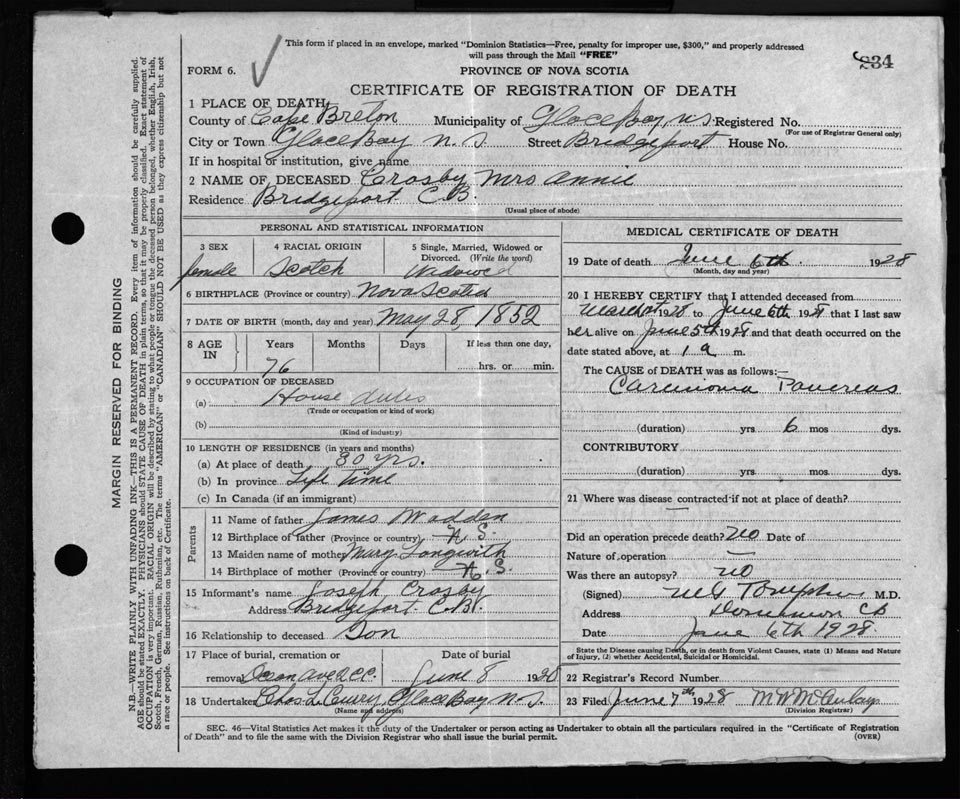 This form if placed in an envelope, marked "Dominion Statistics—Free, penalty for improper use, $300," and properly addressed
will pass through the Mail "FREE"
834
FORM 6. PROVINCE OF NOVA SCOTIA
CERTIFICATE OF REGISTRATION OF DEATH
1 PLACE OF DEATH
County of Cape Breton Municipality of Glace Bay, N S Registered No.
(For use of Registrar General only)
City or Town Glace Bay N. S Street Bridgeport House No.
If in hospital or institution, give name
2 NAME OF DECEASED Crosby Mrs Annie
Residence Bridgeport C.B.
(Usual place of abode)
PERSONAL AND STATISTICAL INFORMATION
3 SEX 4 RACIAL ORIGIN 5 Single, Married, Widowed or
Divorced. (Write the word)
female Scotch Widowed
6 BIRTHPLACE (Province or country) Nova Scotia
7 DATE OF BIRTH (month, day and year) May 28, 1852
8 AGE IN Years Months Days If less than one day,
76 hrs. or min.
9 OCCUPATION OF DECEASED
(a) House duties
(Trade or occupation or kind of work)
(b)
(Kind of industry)
10 LENGTH OF RESIDENCE (in years and months)
(a) At place of death 30 yrs.
(b) In province Life Time
(c) In Canada (if an immigrant)
Parents
11 Name of father James Wadden
12 Birthplace of father (Province or country) N. S.
13 Maiden name of mother Mary Longwith
14 Birthplace of mother (Province or country) N. S.
15 Informant's name Joseph Crosby
Address Bridgeport C.B.
16 Relationship to deceased Son
17 Place of burial, cremation or Date of burial
removal Ocean Ave G.C. June 8 1928
18 Undertaker Chas L Curry Glace Bay N. S.
(Name and address)
MEDICAL CERTIFICATE OF DEATH
19 Date of death June 6th. 1928
(Month, day and year)
20 I HEREBY CERTIFY that I attended deceased from
March 1st 1928 to June 6th 1928 that I last saw
her alive on June 5th 1928 and that death occurred on the
date stated above, at 1 a m.
The CAUSE OF DEATH was as follows:—
Carcinoma Pancreas
(duration) yrs 6 mos dys.
CONTRIBUTORY
(duration) yrs. mos. dys.
21 Where was disease contracted if not at place of death?
—
Did an operation precede death? No Date of
Nature of operation —
Was there an autopsy? no
(Signed) M G Tompkins M.D.
Address Dominion CB
Date June 6th 1928.
State the Disease causing Death, or in death from Violent Causes, state (1) Means and Nature
of Injury, (2) whether Accidental, Suicidal or Homicidal.
22 Registrar's Record Number
23 Filed June 7th 1928 M W McAulay
(Division Registrar)
SEC. 46—Vital Statistics Act makes it the duty of the Undertaker or person acting as Undertaker to obtain all the particulars required in the "Certificate of Registration
of Death" and to file the same with the Division Registrar who shall issue the burial permit.
(OVER)
MARGIN RESERVED FOR BINDING
N.B.—WRITE PLAINLY WITH UNFADING INK—THIS IS A PERMANENT RECORD. Every item of information should be carefully supplied.
AGE should be stated EXACTLY. PHYSICIANS should STATE CAUSE OF DEATH in plain terms, so that it may be properly classified. Exact statement of
OCCUPATION is very important. RACIAL ORIGIN will be described by stating to what people or tongue the deceased person belonged, whether English, Irish,
Scotch, French, German, Russian, Ruthenian, etc. The terms "AMERICAN" or "CANADIAN" SHOULD NOT BE USED as they express citizenship but not
a race or people. See instructions on back of Certificate.